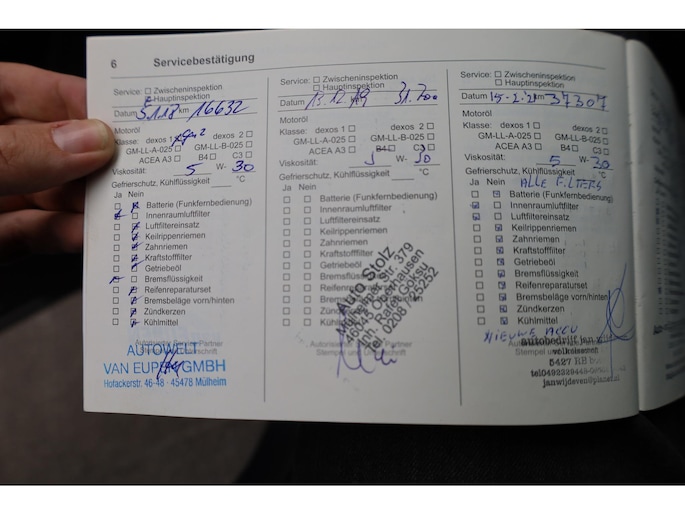 6 Servicebestätigung
Service: Zwischeninspektion
Hauptinspektion
Datum 5.1.18 km 16632
Motoröl
Klasse: dexos 1 dexos 2
GM-LL-A-025 GM-LL-B-025
ACEA A3 B4 C3
Viskosität: 5 W- 30
Gefrierschutz, Kühlflüssigkeit °C
Ja Nein
Batterie (Funkfernbedienung)
Innenraumluftfilter
Luftfiltereinsatz
Keilrippenriemen
Zahnriemen
Kraftstofffilter
Getriebeöl
Bremsflüssigkeit
Reifenreparaturset
Bremsbeläge vorn/hinten
Zündkerzen
Kühlmittel
Autorisierter Service Partner
Stempel und Unterschrift
AUTOWELT
VAN EUPEN GMBH
Hofackerstr. 46-48 · 45478 Mülheim
Service: Zwischeninspektion
Hauptinspektion
Datum 13.12.19 31.700
Motoröl
Klasse: dexos 1 dexos 2
GM-LL-A-025 GM-LL-B-025
ACEA A3 B4 C3
Viskosität: 5 W- 30
Gefrierschutz, Kühlflüssigkeit °C
Ja Nein
Batterie (Funkfernbedienung)
Innenraumluftfilter
Luftfiltereinsatz
Keilrippenriemen
Zahnriemen
Kraftstofffilter
Getriebeöl
Bremsflüssigkeit
Reifenreparaturset
Bremsbeläge
Zündkerzen
Kühlmittel
Auto Stolz
379
Oberhausen
Tel. 0208
Stempel
Service: Zwischeninspektion
Hauptinspektion
Datum 15-2-21 km 37307
Motoröl
Klasse: dexos 1 dexos 2
GM-LL-A-025 GM-LL-B-025
ACEA A3 B4 C3
Viskosität: 5 W- 30
Gefrierschutz, Kühlflüssigkeit °C
Ja Nein ALLE FILTERS
Batterie (Funkfernbedienung)
Innenraumluftfilter
Luftfiltereinsatz
Keilrippenriemen
Zahnriemen
Kraftstofffilter
Getriebeöl
Bremsflüssigkeit
Reifenreparaturset
Bremsbeläge vorn/hinten
Zündkerzen
Kühlmittel
NIEUWE ACCU
autobedrijf jan
5427 RB